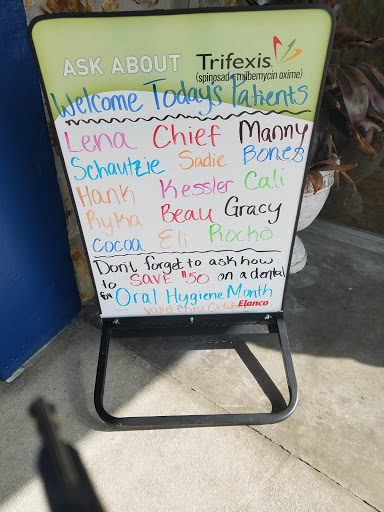 ASK ABOUT Trifexis
(spinosad + milbemycin oxime)
Welcome Today's Patients
Lena Chief Manny
Schautzie Sadie Bones
Hank Kessler Cali
Ryka Beau Gracy
Cocoa Eli Rocko
Don't forget to ask how
to SAVE $50 on a dental
for Oral Hygiene Month
valid thru Octob
Elanco